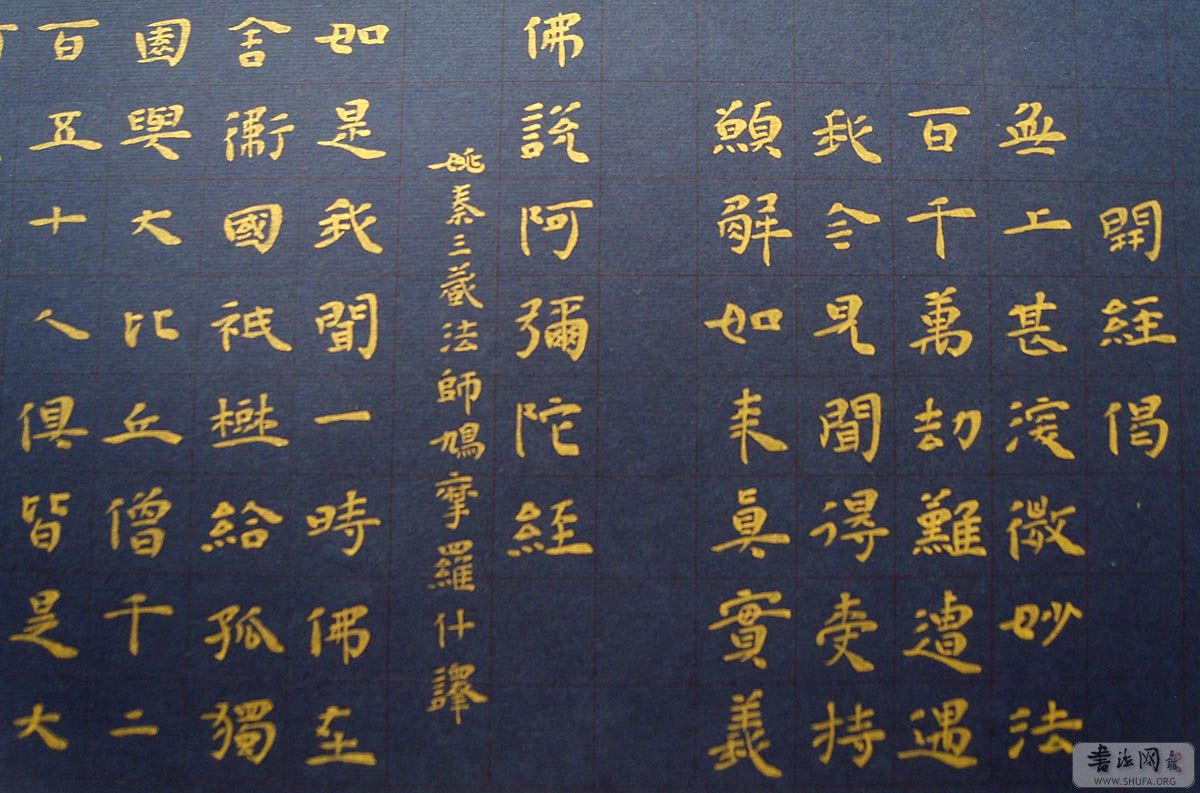 開經偈
無上甚深微妙法
百千萬劫難遭遇
我今見聞得受持
願解如来真實義
佛說阿彌陀經
姚秦三藏法師鳩摩羅什譯
如是我聞一時佛在
舍衛國祇樹給孤獨
園與大比丘僧千二
百五十人俱皆是大
書法网
WWW.SHUFA.ORG